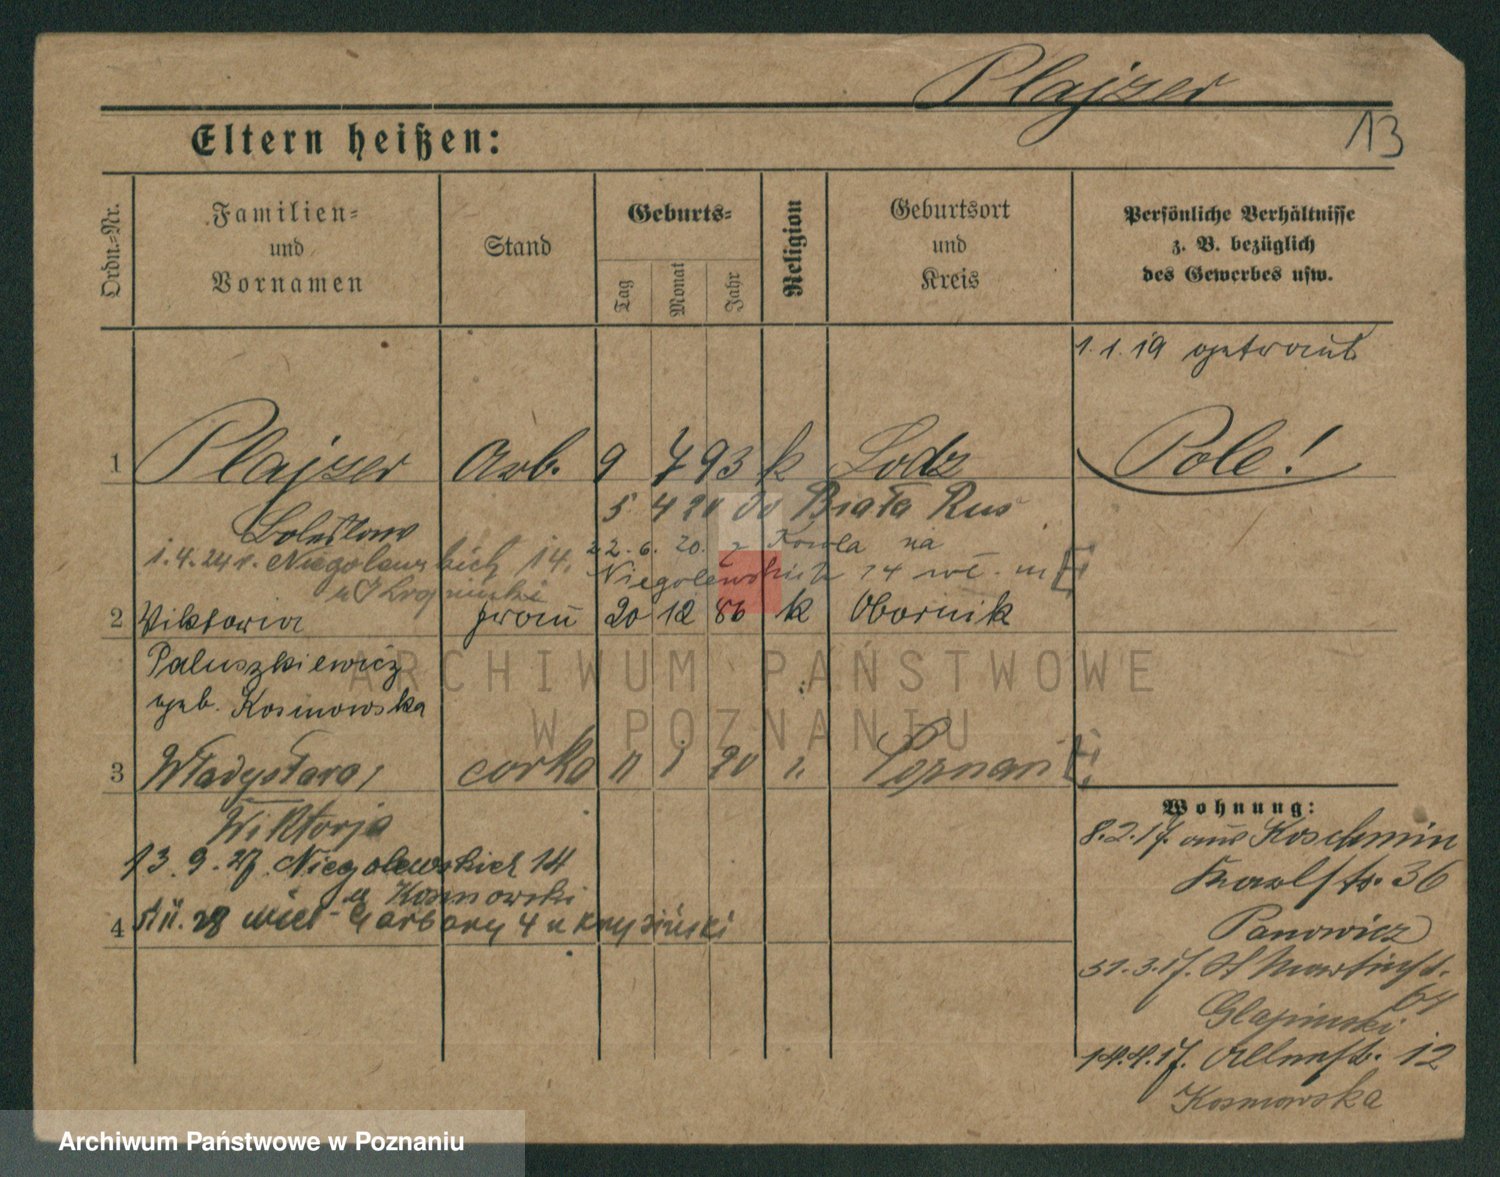 Plajzer
13
Eltern heißen:
Ordn.=Nr.
Familien=
und
Vornamen
Stand
Geburts=
Tag
Monat
Jahr
Religion
Geburtsort
und
Kreis
Persönliche Verhältnisse
z. B. bezüglich
des Gewerbes usw.
1.1.19 getraut
1 Plajzer Arb. 9 7 93 k Lodz Pole!
Bolesław 5 4 20 Biała Rus
1.4.24 r. Niegolewskich 14. 22.6.20. z Kowla na
Niegolewskich 14
2 Viktoria frau 20 12 86 k Obornik
Paluszkiewicz
geb. Kosmowska
3 Władysława, corka 11 1 20 Poznań
Wiktorja
13.9.27. Niegolewskich 14
u Kosmowski
4 28 Garbary 4 u
Wohnung:
8.2.17. aus Koschmin
Karlstr. 36
Panowicz
31.3.17. St Martinst.
64
Glapinski
14.4.17. 12
Kosmowska
ARCHIWUM PAŃSTWOWE
W POZNANIU
Archiwum Państwowe w Poznaniu